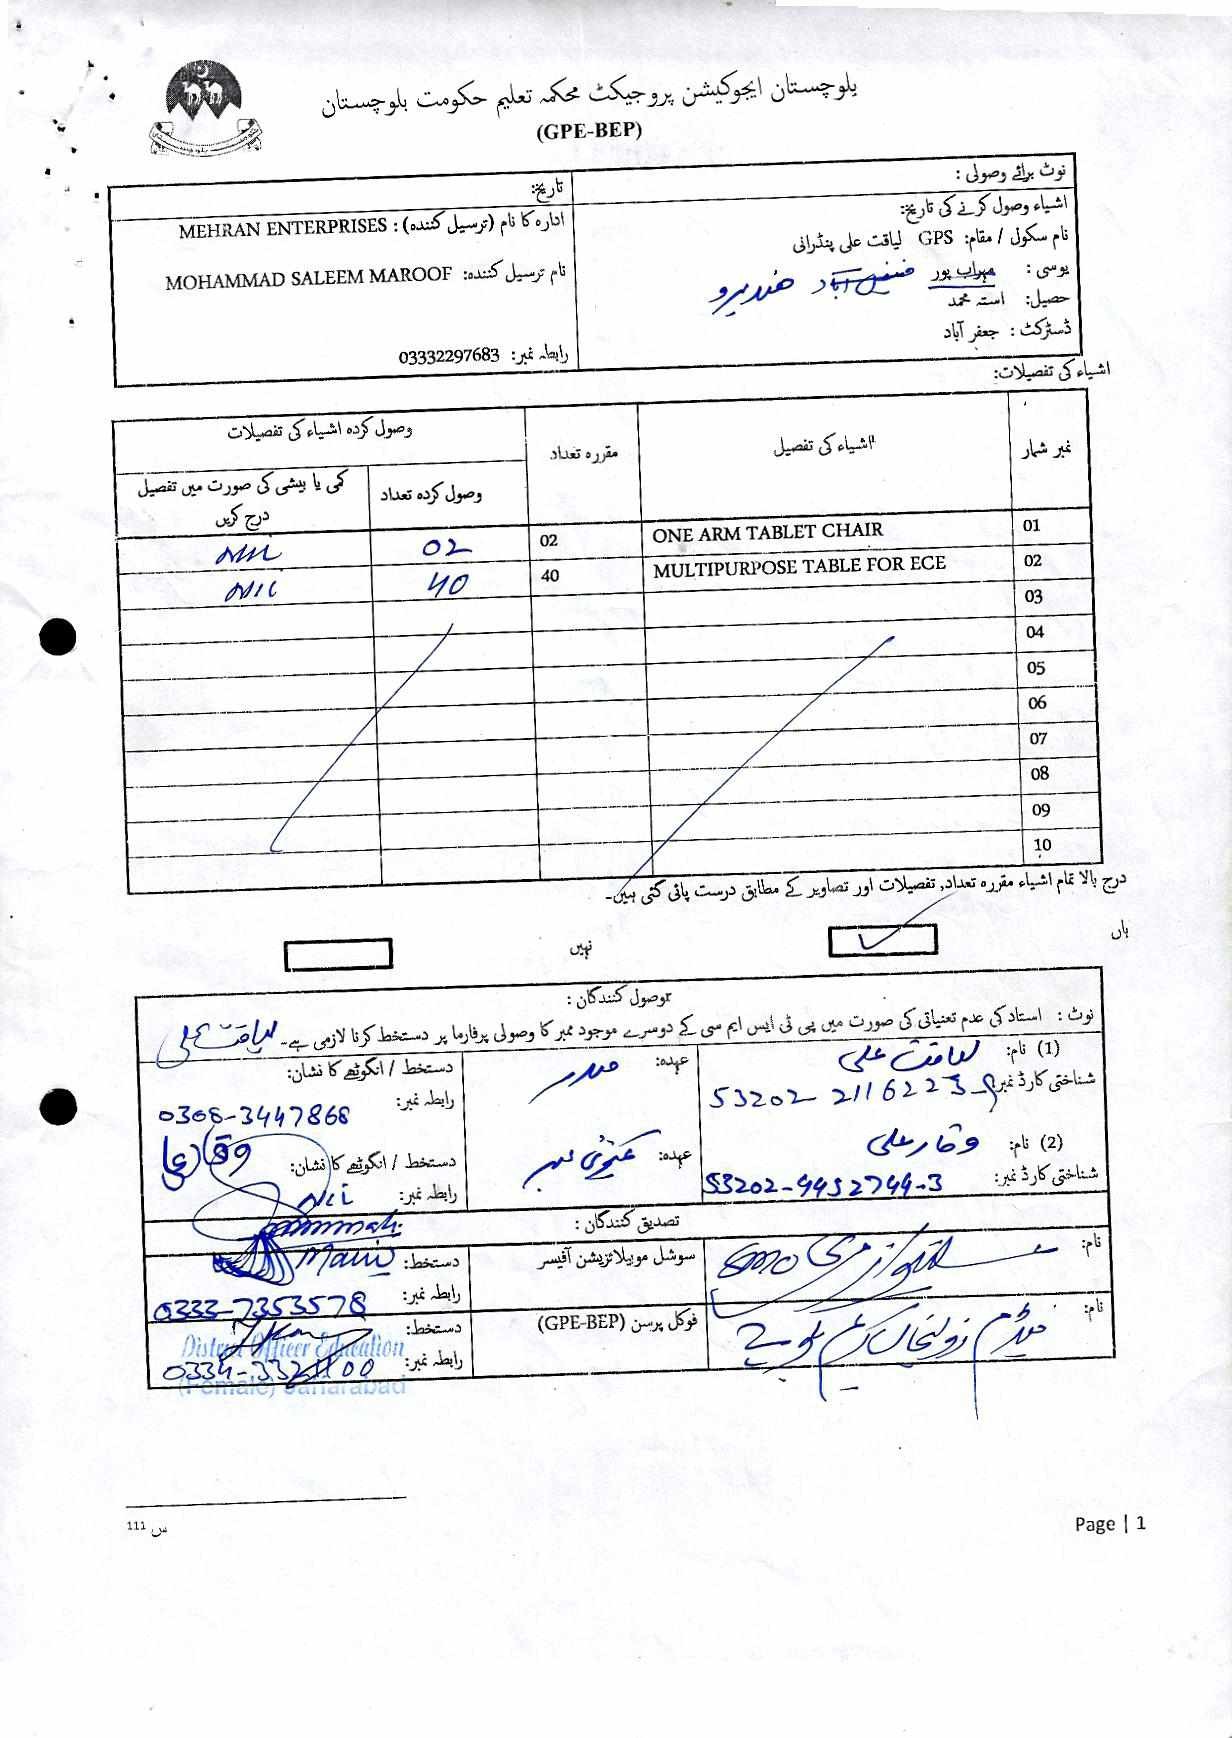 بلوچستان ایجوکیشن پروجیکٹ محکمہ تعلیم حکومت بلوچستان
(GPE-BEP)
نوٹ برائے وصولی :
تاریخ:
اشیاء وصول کرنے کی تاریخ:
ادارہ کا نام (ترسیل کنندہ) : MEHRAN ENTERPRISES
نام سکول / مقام: GPS لیاقت علی پنڈرانی
نام ترسیل کنندہ: MOHAMMAD SALEEM MAROOF
یوسی : مہراب پور
حصیل: استہ محمد
ڈسٹرکٹ : جعفر آباد
رابطہ نمبر: 03332297683
اشیاء کی تفصیلات:
نمبر شمار
اشیاء کی تفصیل
مقررہ تعداد
وصول کردہ اشیاء کی تفصیلات
وصول کردہ تعداد
کمی یا بیشی کی صورت میں تفصیل درج کریں
01 ONE ARM TABLET CHAIR 02 02 NIL
02 MULTIPURPOSE TABLE FOR ECE 40 40 NIL
03
04
05
06
07
08
09
10
درج بالا تمام اشیاء مقررہ تعداد, تفصیلات اور تصاویر کے مطابق درست پائی گئی ہیں۔
ہاں
نہیں
وصول کنندگان :
نوٹ : استاد کی عدم تعنیاتی کی صورت میں پی ٹی ایس ایم سی کے دوسرے موجود ممبر کا وصولی پرفارما پر دستخط کرنا لازمی ہے۔ لیاقت علی
(1) نام: لیاقت علی
عہدہ: صدر
دستخط / انگوٹھے کا نشان:
شناختی کارڈ نمبر: 53202-2116223-9
رابطہ نمبر: 0306-3447868
(2) نام: وقار علی
عہدہ:
دستخط / انگوٹھے کا نشان: وقار علی
شناختی کارڈ نمبر: 53202-9452749-3
رابطہ نمبر: Nil
تصدیق کنندگان :
نام:
سوشل موبیلائزیشن آفیسر
دستخط:
رابطہ نمبر: 0333-7353578
نام:
فوکل پرسن (GPE-BEP)
دستخط:
District Officer Education
رابطہ نمبر:
(Female) Jafarabad
س 111
Page | 1